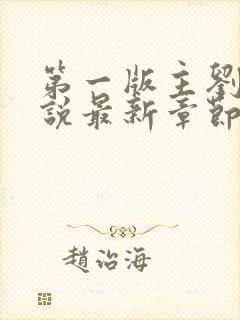 第一版主劉
說最新章節
趙治海